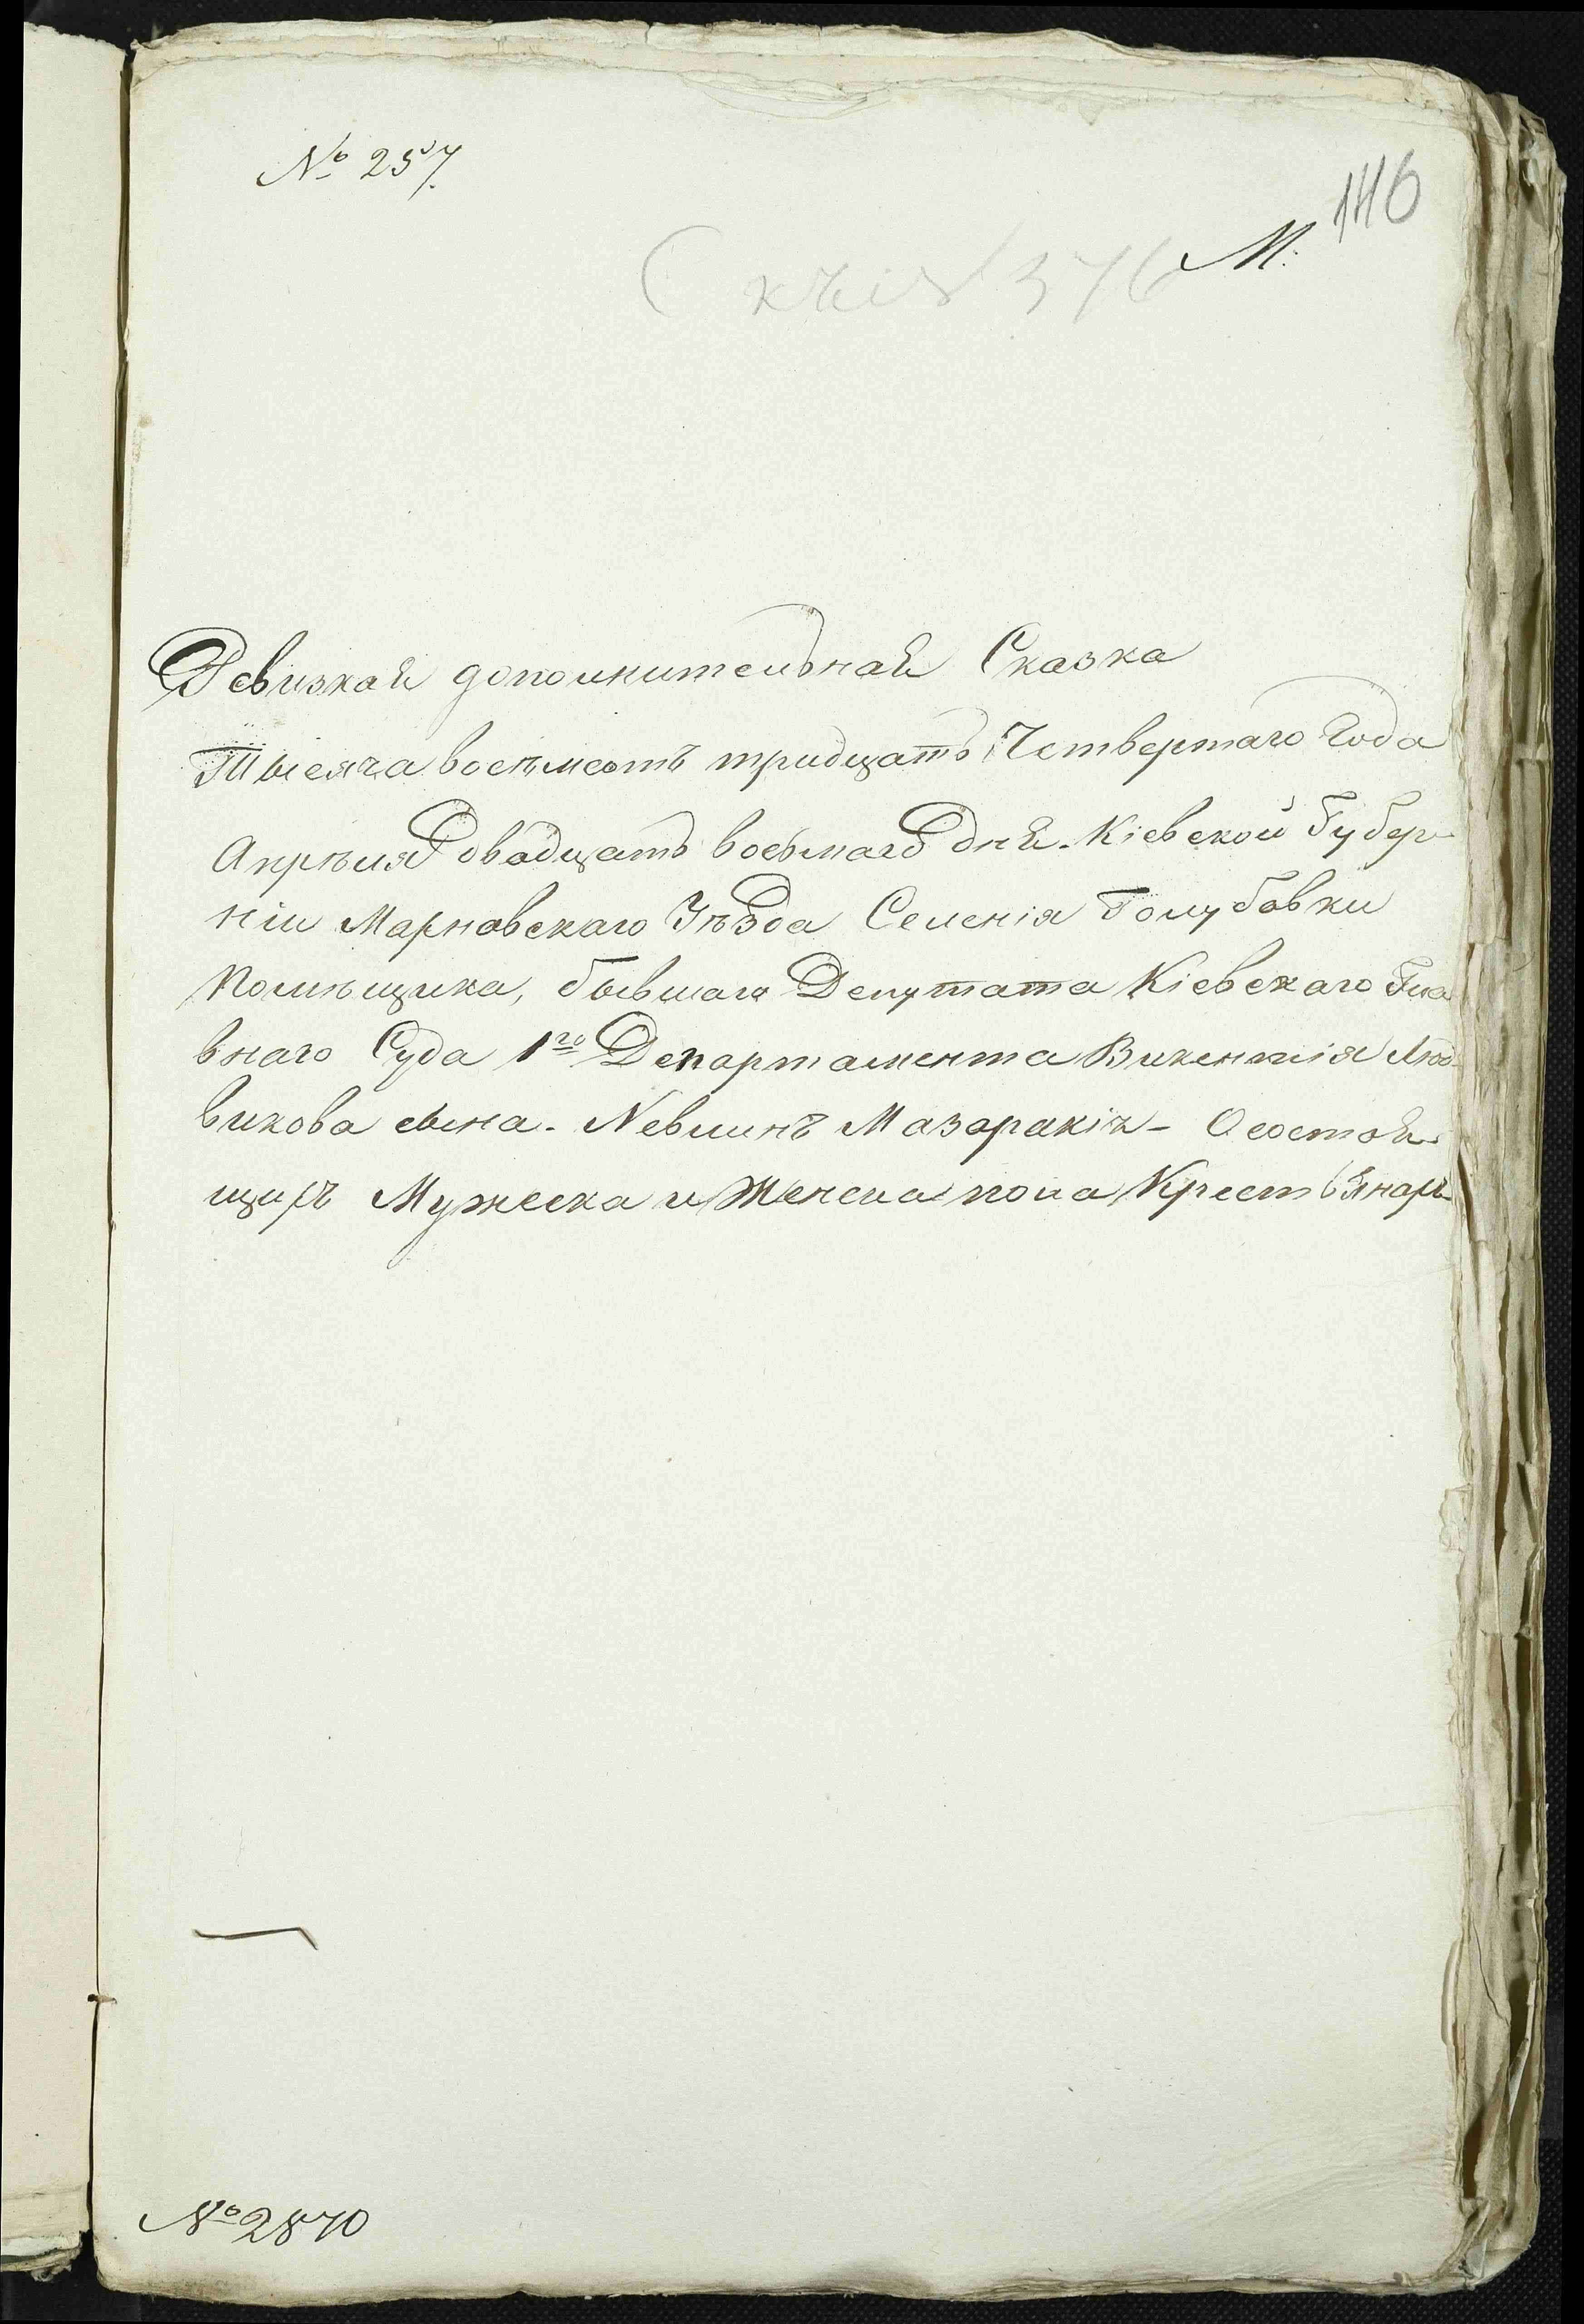 № 257.
146
М:
376
Ревизкая дополнительная Сказка
Тысяча восемсотъ тридцать Четвертаго Года
Апрѣля двадцать восьмаго дня. Кіевской Губер-
ніи Марновскаго Уѣзда Селенія Голубовки
Помѣщика, бывшаго Депутата Кіевскаго Гла
внаго Суда 1го Департамента Викентія Люд-
викова сына. Невлинъ Мазаракіи - О состоя-
щихъ Мужеска и Женска пола Крестьянахъ
№ 2870